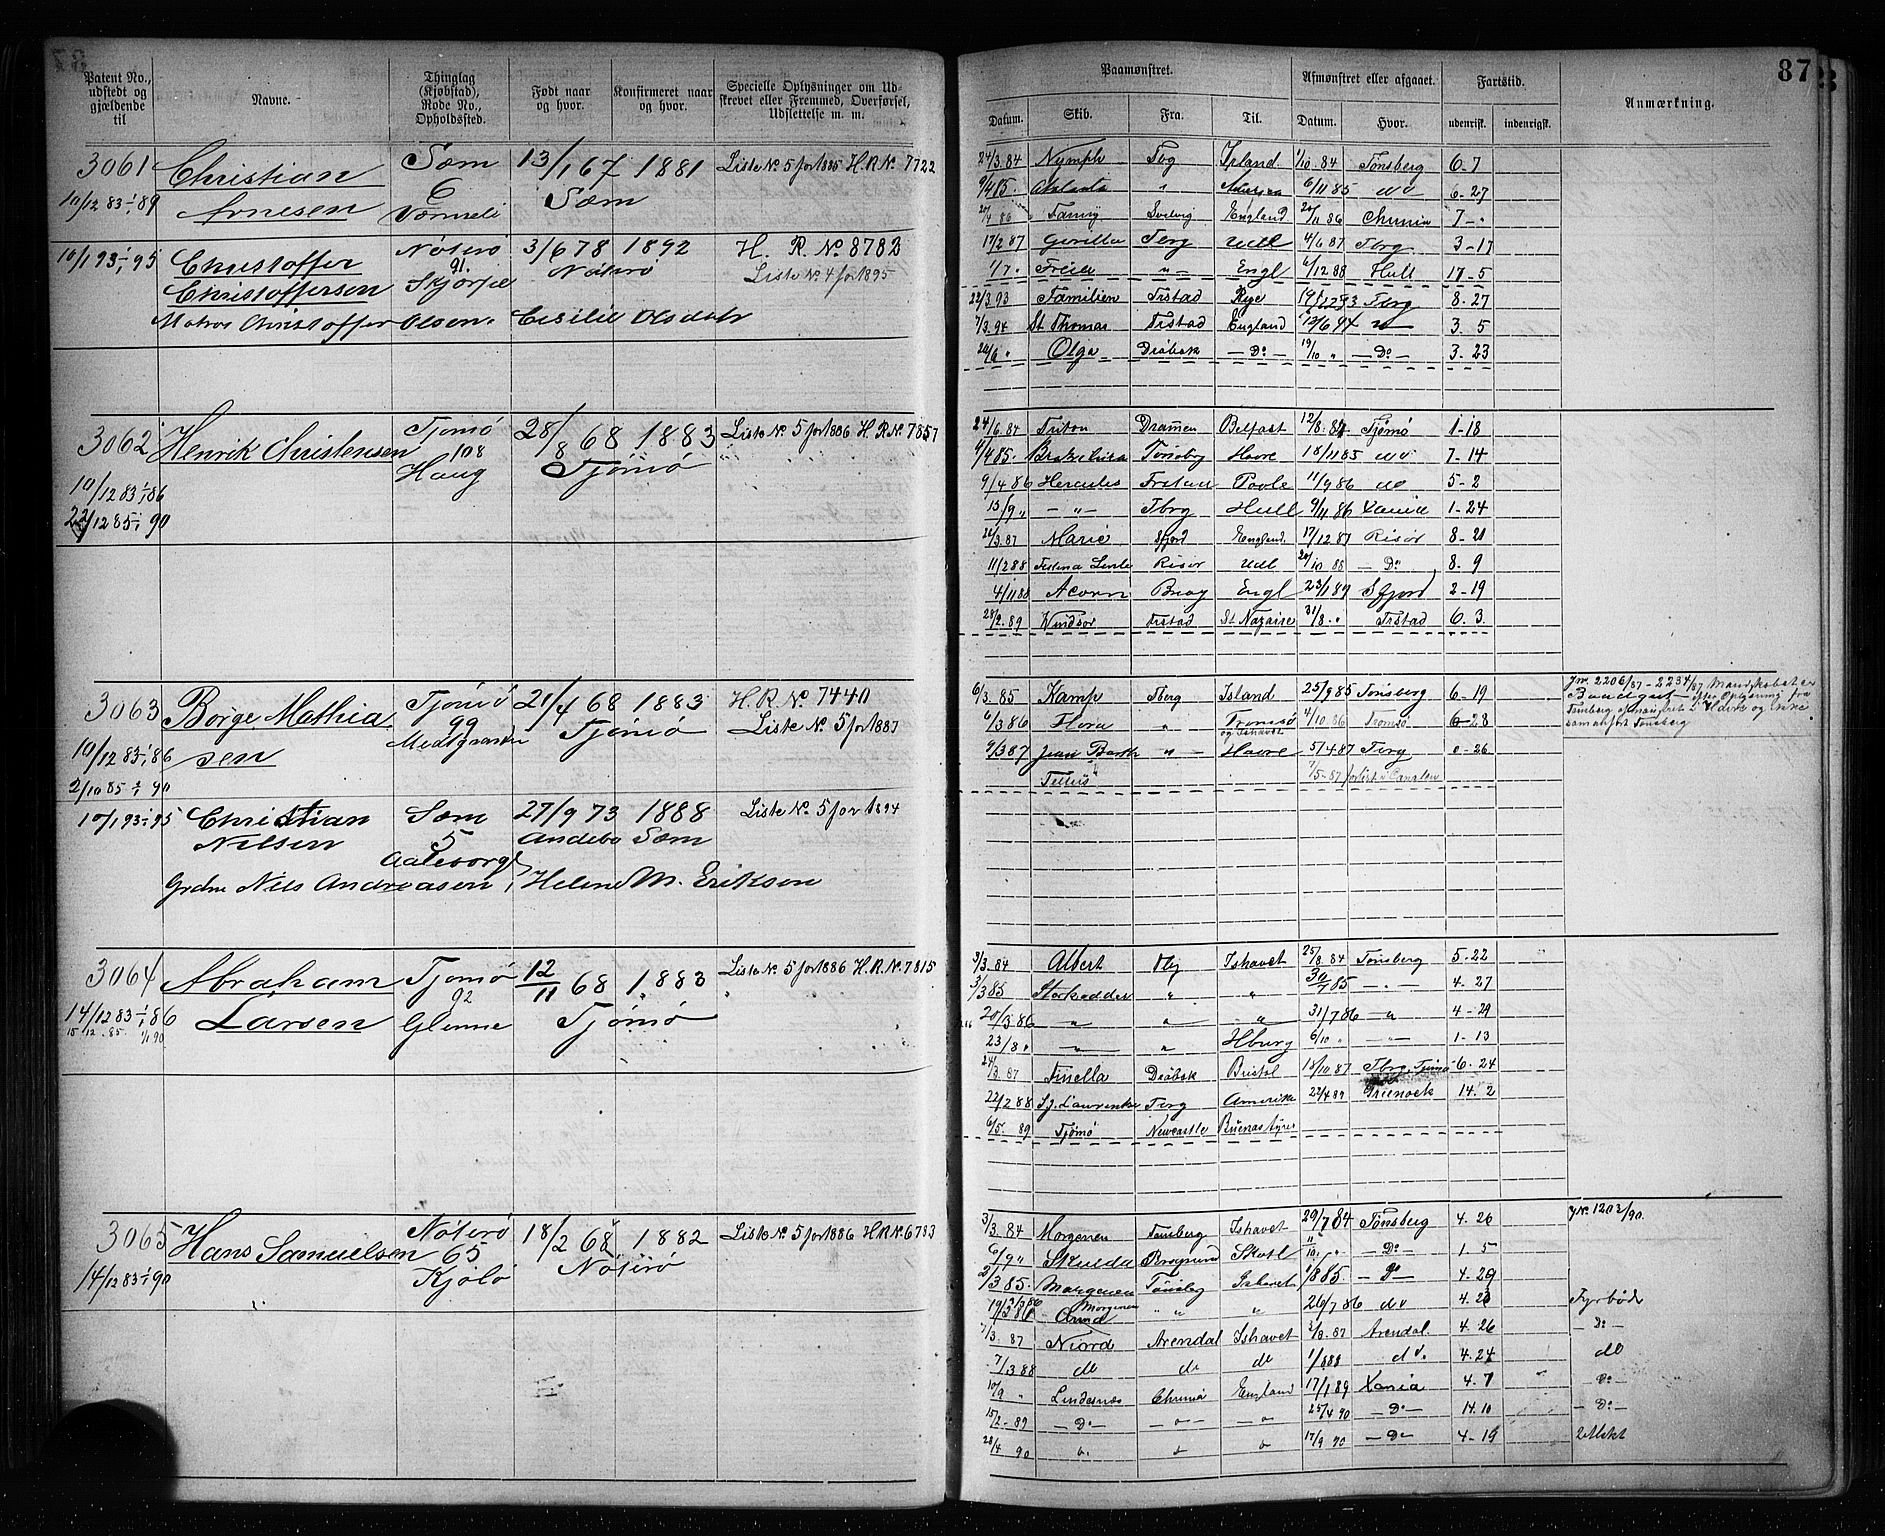 Patent No., udstedt og gjældende til
Navne.
Thinglag (Kjøbstad), Rode No., Opholdssted.
Født naar og hvor.
Konfirmeret naar og hvor.
Specielle Oplysninger om Udskrevet eller Fremmed, Overførsel, Udslettelse m. m.
3061 Christian Sæm 13/1 67 1881 Liste No. 5 for 1885 H.R.No. 7722
10/12 83 1/1 89 Arnesen 6 Sæm
10/1 93 1/1 95 Christoffer Nøterø 3/6 78 1892 H. R. No 8783
Christoffersen 91. Nøterø Liste No. 4 for 1895
Matros Christoffer Olsen. Cecilie Olsdatr
3062 Henrik Christensen Tjømø 28/8 68 1883 Liste No. 5 for 1886 H.R.No. 7857
108 Tjømø
Haug
10/12 83 1/1 86
22/12 85 1/1 90
3063 Børge Mathia Tjømø 21/4 68 1883 H.R.No. 7440
99 Tjømø Liste No. 5 for 1887
10/12 83 1/1 86 sen
2/10 85 1/1 90
10/1 93 1/1 95 Christian Sæm 27/9 73 1888 Liste No. 5 for 1894
Nilsen 5 Andebo Sæm
Grdm Nils Andreasen, Helene M. Erikson
3064 Abraham Tjømø 12/11 68 1883 Liste No. 5 for 1886 H.R.No. 7815
92
14/12 83 1/1 86 Larsen Glenne Tjømø
15 12 85 1/1 90
3065 Hans Samuelsen Nøterø 18/2 68 1882 Liste No. 5 for 1886 H.R.No. 6733
65 Nøterø
14/12 83 1/1 90 Kjøló
87
Paamønstret.
Afmønstret eller afgaaet.
Fartstid.
Anmærkning.
Datum. Skib. Fra. Til. Datum. Hvor. udenrigsk. indenrigsk.
24/3. 84 Nymph Tbg Irland 1/10. 84 Tønsberg 6. 7
9/4 85. Atalanta " 6/11 85 do 6-27
20/4 86 Fanny Svelvig England 20/11 86 7 -"
17/2 87 Gorilla Tbrg Hull 4/6 87 Tbrg 3-17
1/7. " Freia " Engl 6/12 88 Hull 17-5
22/3. 93 Familien Frstad Rye 19/12 93 Tbrg 8-27
7/3. 94 St Thomas Frstad England 12/6 94 3. 5
26/6 " Olga Drøbak — Do — 19/10 " — Do — 3-23
24/6. 84 Triton Dramen Belfast 12/8. 84 Tjømø 1-18
4/4 85. Tønsbrg Havre 18/11 85 do 7-14
9/4 86 Hercules Frstad Poole 11/9 86 do 5-2
13/9 " — " — Tbrg Hull 9/11 86 Xania 1-24
21/3. 87 Marie Sfjord England. 17/12 87 Risør 8-21
11/2 88 Risør Hull 20/10 88 — Do 8. 9
4/11 88 Acorn Engl 23/1 89 Sfjord 2-19
28/2. 89 Windsor Frstad St Nazaire 31/8. " Frstad 6. 3.
6/3. 85 Kamp Tberg Island 25/9 85 Tønsberg 6-19
6/3 86 Flora " Tromsø og Ishavet 4/10 86 Tromsø 6-28
9/3 87 Jean Barth " Havre 5/4 87 Tbrg 0-26
Tellus 1/5-87 forlist i Canalen
Jnr. 2206/87 - 2234/87
3/3. 84 Albert Ishavet 25/8. 84 Tønsberg 5-22
3/3 85 " " 30/7 85 — " — 4-27
20/3 86 " " " 31/7 86 " 4-29
23/8 " " Hburg 6/10 " — " — 1-13
24/3. 87 Finella Drøbak Bristol 18/10 87 Tbrg. Tjømø 6-24
22/2 88 St. Lawrence Tbrg Amerika 22/4 89 Greenock 14. 2
6/5. 89 Tjømø Newcastle Buenos Ayres
3/3. 84 Morgenen Tønsberg Ishavet 29/7 84 Tønsberg 4. 26 J.No. 1203/90.
6/9 " Skulda Skotl 11/10 " — Do — 1. 5
2/3 85 Morgenen Tønsbg Ishavet 1/8 85. — Do — 4-29
19/3 86 Morgenen " " 26/7 86 do 4. 23 Fyrbøde
7/3. 87 Niord Arendal Ishavet 2/8. 87 Arendal. 4. 26 — Do —
7/3 88 do do do 1/8 88 do. 4. 24 do
10/9 " Lindesnæs Chrania England 17/1 89 Xania 4. 7 — Do —
15/2-89 — Do — — " — — " 25/4 90 — Do — 14. 10 — Do —
28/4 90 " " " 17/9 90 — Do — 4-19